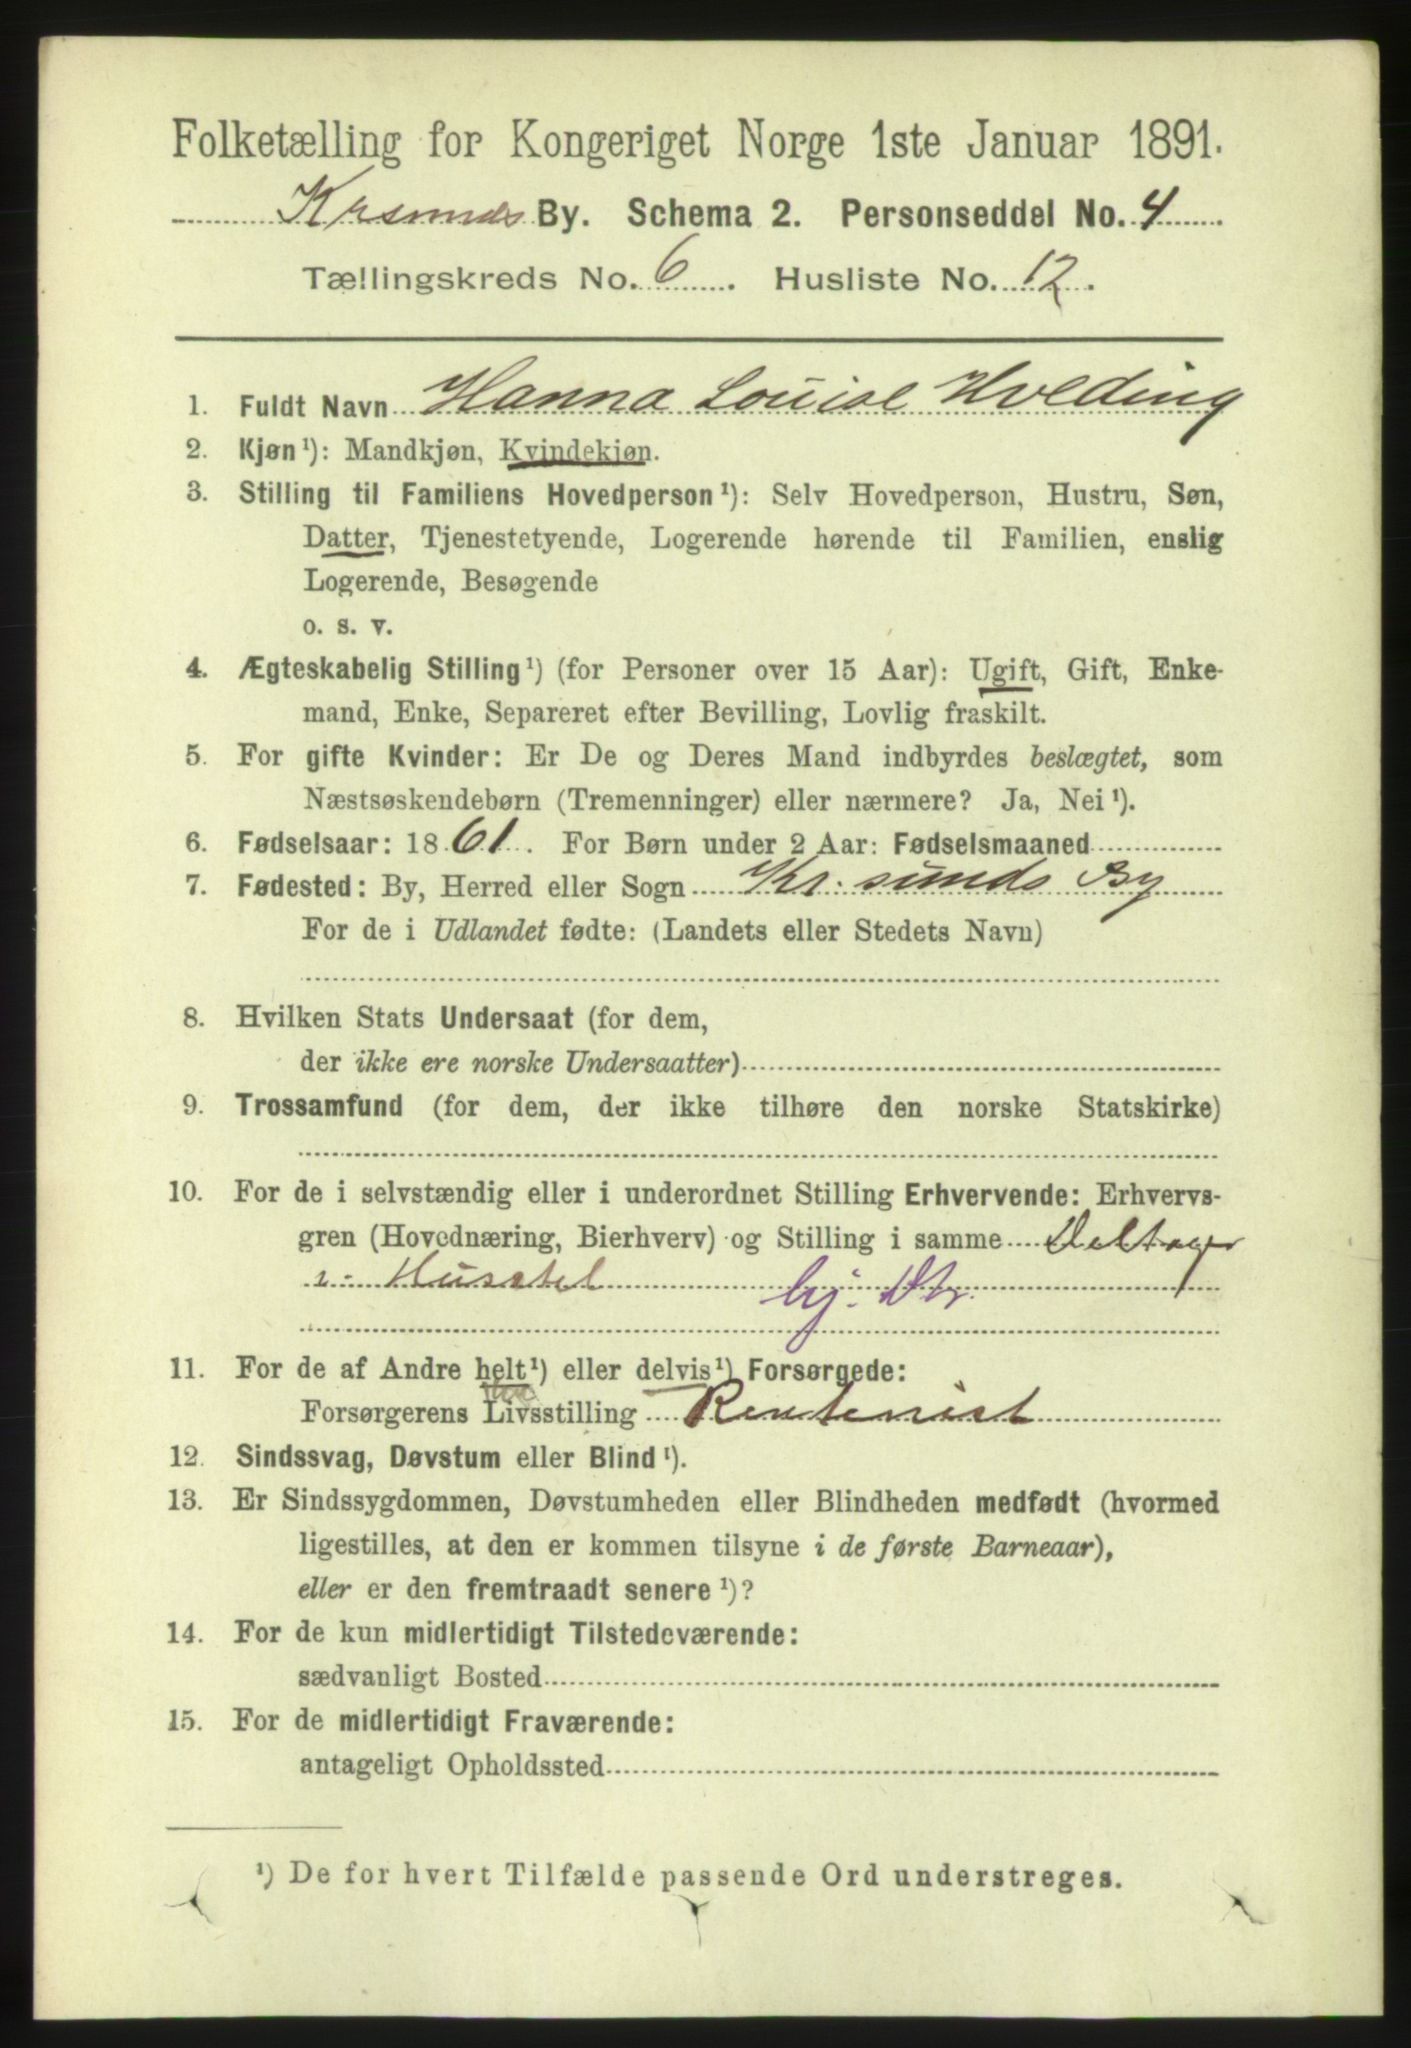 Folketælling for Kongeriget Norge 1ste Januar 1891.
Krsunds By. Schema 2. Personseddel No. 4
Tællingskreds No. 6. Husliste No. 12.
1. Fuldt Navn Hanna Louise Hveding
2. Kjøn¹): Mandkjøn, Kvindekjøn.
3. Stilling til Familiens Hovedperson¹): Selv Hovedperson, Hustru, Søn,
Datter, Tjenestetyende, Logerende hørende til Familien, enslig
Logerende, Besøgende
o. s. v.
4. Ægteskabelig Stilling¹) (for Personer over 15 Aar): Ugift, Gift, Enke-
mand, Enke, Separeret efter Bevilling, Lovlig fraskilt.
5. For gifte Kvinder: Er De og Deres Mand indbyrdes beslægtet, som
Næstsøskendebørn (Tremenninger) eller nærmere? Ja, Nei¹).
6. Fødselsaar: 1861. For Børn under 2 Aar: Fødselsmaaned
7. Fødested: By, Herred eller Sogn Kr. sunds By
For de i Udlandet fødte: (Landets eller Stedets Navn)
8. Hvilken Stats Undersaat (for dem,
der ikke ere norske Undersaatter)
9. Trossamfund (for dem, der ikke tilhøre den norske Statskirke)
10. For de i selvstændig eller i underordnet Stilling Erhvervende: Erhvervs-
gren (Hovednæring, Bierhverv) og Stilling i samme Deltager
i Husstel hj. Dtr.
11. For de af Andre helt¹) eller delvis¹) Forsørgede:
Forsørgerens Livsstilling Rentenist
12. Sindssvag, Døvstum eller Blind¹).
13. Er Sindssygdommen, Døvstumheden eller Blindheden medfødt (hvormed
ligestilles, at den er kommen tilsyne i de første Barneaar),
eller er den fremtraadt senere¹)?
14. For de kun midlertidigt Tilstedeværende:
sædvanligt Bosted
15. For de midlertidigt Fraværende:
antageligt Opholdssted
¹) De for hvert Tilfælde passende Ord understreges.